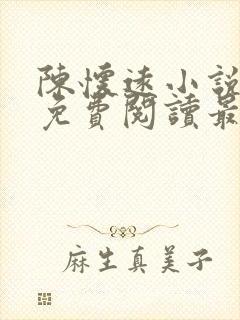 陳懷遠小說
免費閱讀最
麻生真美子